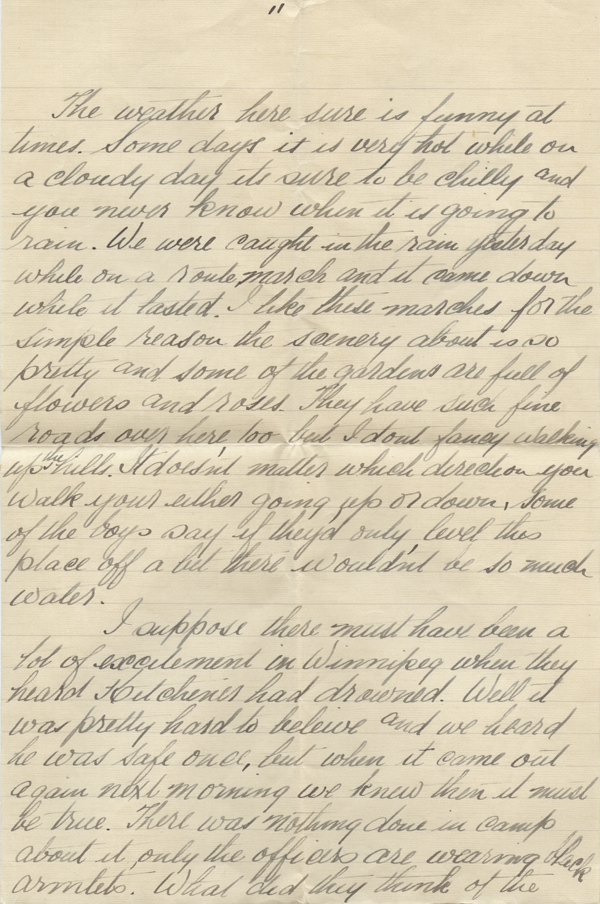 "
The weather here sure is funny at
times. Some days it is very hot while on
a cloudy day its sure to be chilly and
you never know when it is going to
rain. We were caught in the rain yesterday
while on a route march and it came down
while it lasted. I like these marches for the
simple reason the scenery about is so
pretty and some of the gardens are full of
flowers and roses. They have such fine
roads over here too but I dont fancy walking
up the hills. It doesn't matter which direction you
walk your either going up or down, some
of the boys say if they'd only level this
place off a bit there wouldn't be so much
water.
I suppose there must have been a
lot of excitement in Winnipeg when they
heard Kitchener had drowned. Well it
was pretty hard to beleive and we heard
he was safe once, but when it came out
again next morning we knew then it must
be true. There was nothing done in camp
about it only the officers are wearing black
armlets. What did they think of the